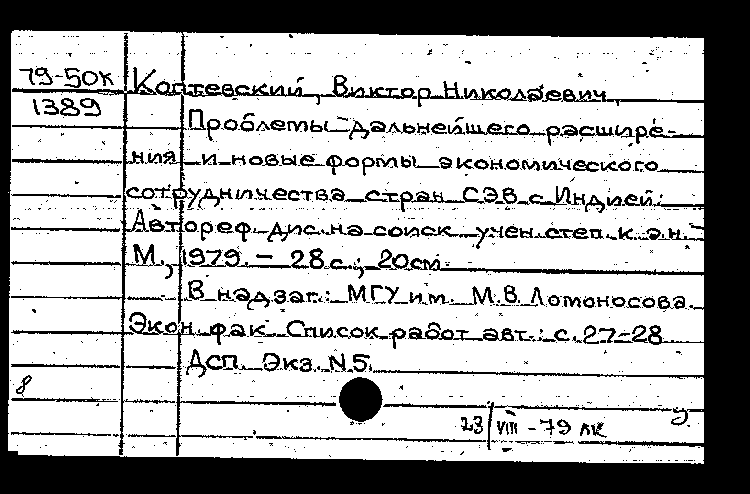 79-50к Коптевский, Виктор Николаевич.
1389 Проблемы дальнейшего расшире-
ния и новые формы экономического
сотрудничества стран СЭВ с Индией:
Автореф. дис. на соиск. учен. степ. к. э. н. -
М., 1979. - 28 с.; 20 см.
В надзаг.: МГУ им. М.В. Ломоносова.
Экон. фак. Список работ авт.: с. 27-28
ДСП. Экз. N 5.
8
23/VIII - 79 лк